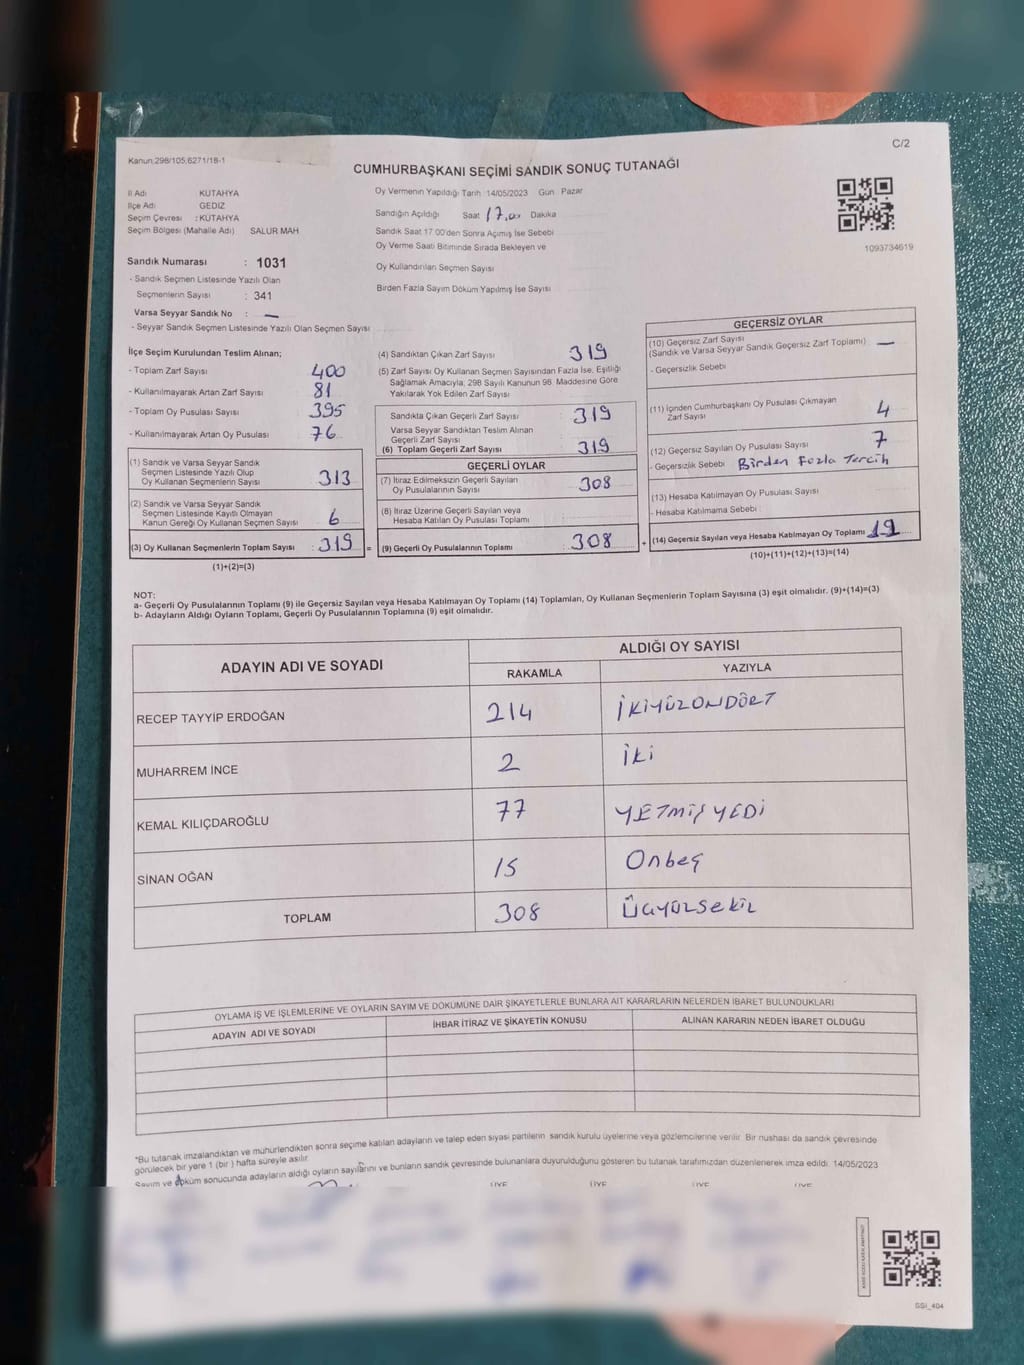 C/2
Kanun:298/105,6271/18-1
CUMHURBAŞKANI SEÇİMİ SANDIK SONUÇ TUTANAĞI
İl Adı KÜTAHYA
İlçe Adı GEDİZ
Seçim Çevresi : KÜTAHYA
Seçim Bölgesi (Mahalle Adı) SALUR MAH
Sandık Numarası : 1031
- Sandık Seçmen Listesinde Yazılı Olan
Seçmenlerin Sayısı : 341
Varsa Seyyar Sandık No : —
- Seyyar Sandık Seçmen Listesinde Yazılı Olan Seçmen Sayısı
Oy Vermenin Yapıldığı Tarih 14/05/2023 Gün Pazar
Sandığın Açıldığı Saat 17.00 Dakika
Sandık Saat 17:00'den Sonra Açımış İse Sebebi
Oy Verme Saati Bitiminde Sırada Bekleyen ve
Oy Kullandırılan Seçmen Sayısı
Birden Fazla Sayım Döküm Yapılmış İse Sayısı
1093734619
İlçe Seçim Kurulundan Teslim Alınan;
- Toplam Zarf Sayısı 400
- Kullanılmayarak Artan Zarf Sayısı 81
- Toplam Oy Pusulası Sayısı 395
- Kullanılmayarak Artan Oy Pusulası 76
(1) Sandık ve Varsa Seyyar Sandık
Seçmen Listesinde Yazılı Olup
Oy Kullanan Seçmenlerin Sayısı 313
(2) Sandık ve Varsa Seyyar Sandık
Seçmen Listesinde Kayıtlı Olmayan
Kanun Gereği Oy Kullanan Seçmen Sayısı 6
(3) Oy Kullanan Seçmenlerin Toplam Sayısı : 319 =
(1)+(2)=(3)
(4) Sandıktan Çıkan Zarf Sayısı 319
(5) Zarf Sayısı Oy Kullanan Seçmen Sayısından Fazla İse, Eşitliği
Sağlamak Amacıyla; 298 Sayılı Kanunun 98. Maddesine Göre
Yakılarak Yok Edilen Zarf Sayısı
Sandıkta Çıkan Geçerli Zarf Sayısı : 319
Varsa Seyyar Sandıktan Teslim Alınan
Geçerli Zarf Sayısı
(6) Toplam Geçerli Zarf Sayısı : 319
GEÇERLİ OYLAR
(7) İtiraz Edilmeksizin Geçerli Sayılan
Oy Pusulalarının Sayısı 308
(8) İtiraz Üzerine Geçerli Sayılan veya
Hesaba Katılan Oy Pusulası Toplamı
(9) Geçerli Oy Pusulalarının Toplamı : 308 +
GEÇERSİZ OYLAR
(10) Geçersiz Zarf Sayısı
(Sandık ve Varsa Seyyar Sandık Geçersiz Zarf Toplamı) —
- Geçersizlik Sebebi
(11) İçinden Cumhurbaşkanı Oy Pusulası Çıkmayan
Zarf Sayısı 4
(12) Geçersiz Sayılan Oy Pusulası Sayısı 7
- Geçersizlik Sebebi Birden Fazla Tercih
(13) Hesaba Katılmayan Oy Pusulası Sayısı
- Hesaba Katılmama Sebebi
(14) Geçersiz Sayılan veya Hesaba Katılmayan Oy Toplamı
(10)+(11)+(12)+(13)=(14)
NOT:
a- Geçerli Oy Pusulalarının Toplamı (9) ile Geçersiz Sayılan veya Hesaba Katılmayan Oy Toplamı (14) Toplamları, Oy Kullanan Seçmenlerin Toplam Sayısına (3) eşit olmalıdır. (9)+(14)=(3)
b- Adayların Aldığı Oyların Toplamı, Geçerli Oy Pusulalarının Toplamına (9) eşit olmalıdır.
ADAYIN ADI VE SOYADI ALDIĞI OY SAYISI
RAKAMLA YAZIYLA
RECEP TAYYİP ERDOĞAN 214 İKİYÜZONDÖRT
MUHARREM İNCE 2 İki
KEMAL KILIÇDAROĞLU 77 YETMİŞ YEDİ
SİNAN OĞAN 15 Onbeş
TOPLAM 308 Üçyüzsekiz
OYLAMA İŞ VE İŞLEMLERİNE VE OYLARIN SAYIM VE DÖKÜMÜNE DAİR ŞİKAYETLERLE BUNLARA AİT KARARLARIN NELERDEN İBARET BULUNDUKLARI
ADAYIN ADI VE SOYADI İHBAR İTİRAZ VE ŞİKAYETİN KONUSU ALINAN KARARIN NEDEN İBARET OLDUĞU
*Bu tutanak imzalandıktan ve mühürlendikten sonra seçime katılan adayların ve talep eden siyasi partilerin sandık kurulu üyelerine veya gözlemcilerine verilir. Bir nushası da sandık çevresinde
görülecek bir yere 1 (bir) hafta süreyle asılır.
Sayım ve döküm sonucunda adayların aldığı oyların sayılarını ve bunların sandık çevresinde bulunanlara duyurulduğunu gösteren bu tutanak tarafımızdan düzenlenerek imza edildi. 14/05/2023
ÜYE ÜYE ÜYE ÜYE
GSI_404